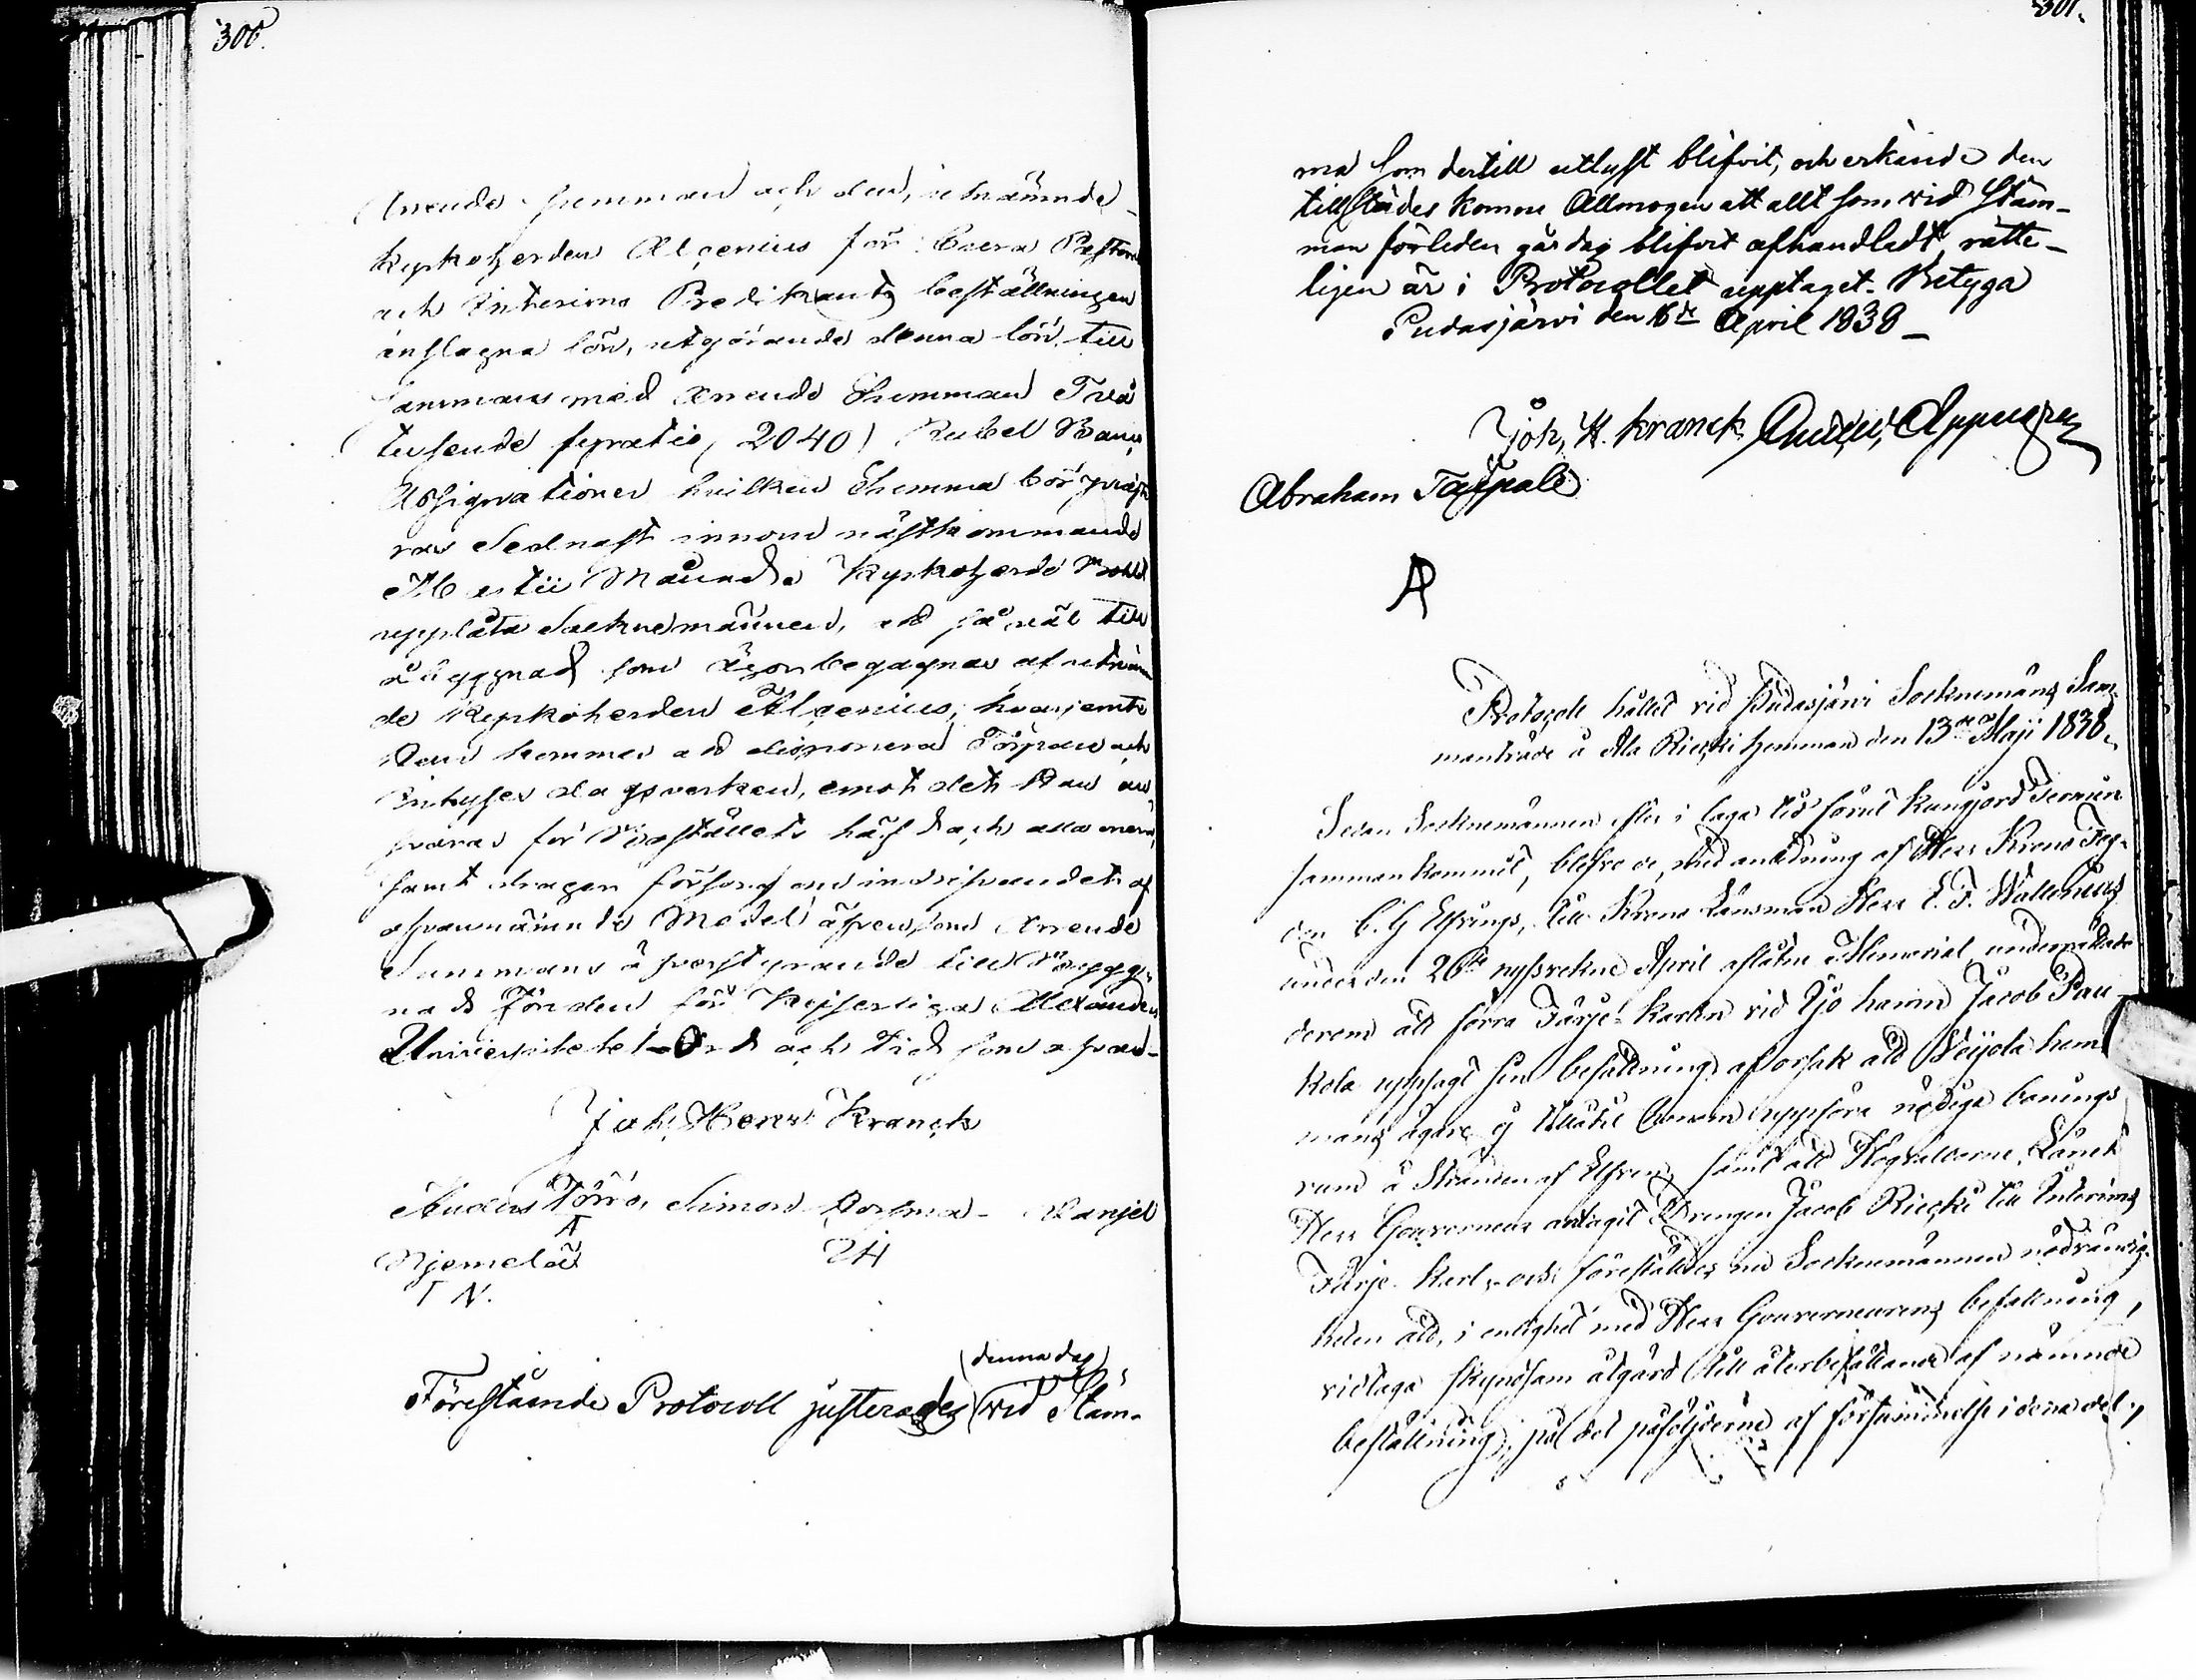 300.
Arende summan och den, utnämnde
Kyrkoherden Alcenius för Curæ Pastor
och Interims Predikants beställningen
anslagna lön, utgörande denna lön till
sammans med Arende Summan Två
tusende fyratio, 2040) Rubel Banco
Assignationer hvilken Summa bör præste
ras sednast innom nästkommande
Martii Månad Kyrkoherde
upplåta Socknemännen, så väl till
åbyggnad som begagnas af utnäm
de Kyrkoherden Alcenius, hvarjemte
Han kommer att disponera Torpare och
Inhyses dagsverken, emot det Han an
svarar för Prestställets häfd och alla onera,
samt drager försorg om indrifvandet af
ofvannämnde Medel äfvensom Arende
Summans öfverstyrande till Bygg
nads Fonden för Kejserliga Alexanders
Universitetet Ord och Tid som ofvan
Joh. Henr. Kranck
Anders Törrö, Simon Daniel
Njemelä
T N.
(denna dag)
Förestående Protocoll justerades vid Stäm-
301.
ma som dertill utlyst blifvit, och erkände den
tillstädes komne Allmogen att allt som vid Stäm-
man förleden gårdag blifvit afhandladt, rätte-
ligen är i Protocollet upptaget. Betyga
Pudasjärvi den 16de April 1838
Joh. H. Kranck
Abraham Taipale
Protocoll hållet vid Pudasjärvi Socknemäns Sam-
manträde å Ala Riecki hemman den 13de Maji 1838.
Sedan Socknemännen efter i laga tid förut kungjord Termin
sammankommit, blefvo de, med anledning af Herr Krono Fog-
den C. G Elfvings, till Krono Länsman Herr E. F. Wallenius
under den 26de nyssvekne April aflåtne Memorial, underrättade
derom att förra Färje-karlen vid Ijo hamn Jacob Pau-
kola uppsagt sin befattning af orsak att Veijola hem-
mans ägare ej tillåtit honom uppföra nödiga bonings
rum å Stranden af Elfven, samt att Högvälborne Länets
Herr Gouverneur antagit Drengen Jacob Riecki till Interims
Färje-karl, och föreställdes nu Socknemännen nödvändig-
heten att, i enlighet med Herr Gouverneurens befallning,
vidtaga skyndsam åtgärd till återbesättande af nämnde
beställning, vid påföljderne af försummelse i denna del,